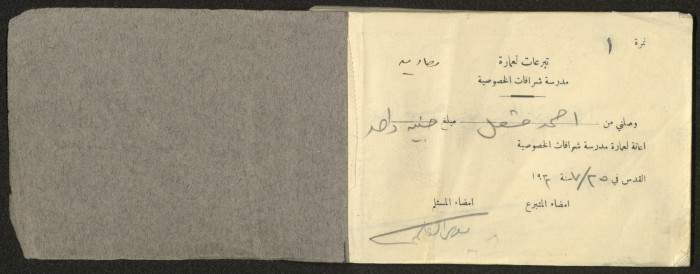 نمرة ١
تبرعات لعمارة
مدرسة شرافات الخصوصية
وصلني من احمد مشعل مبلغ جنيه واحد
اعانة لعمارة مدرسة شرافات الخصوصية
القدس في ٢٥/٧ سنة ١٩٣
امضاء المتبرع امضاء المستلم